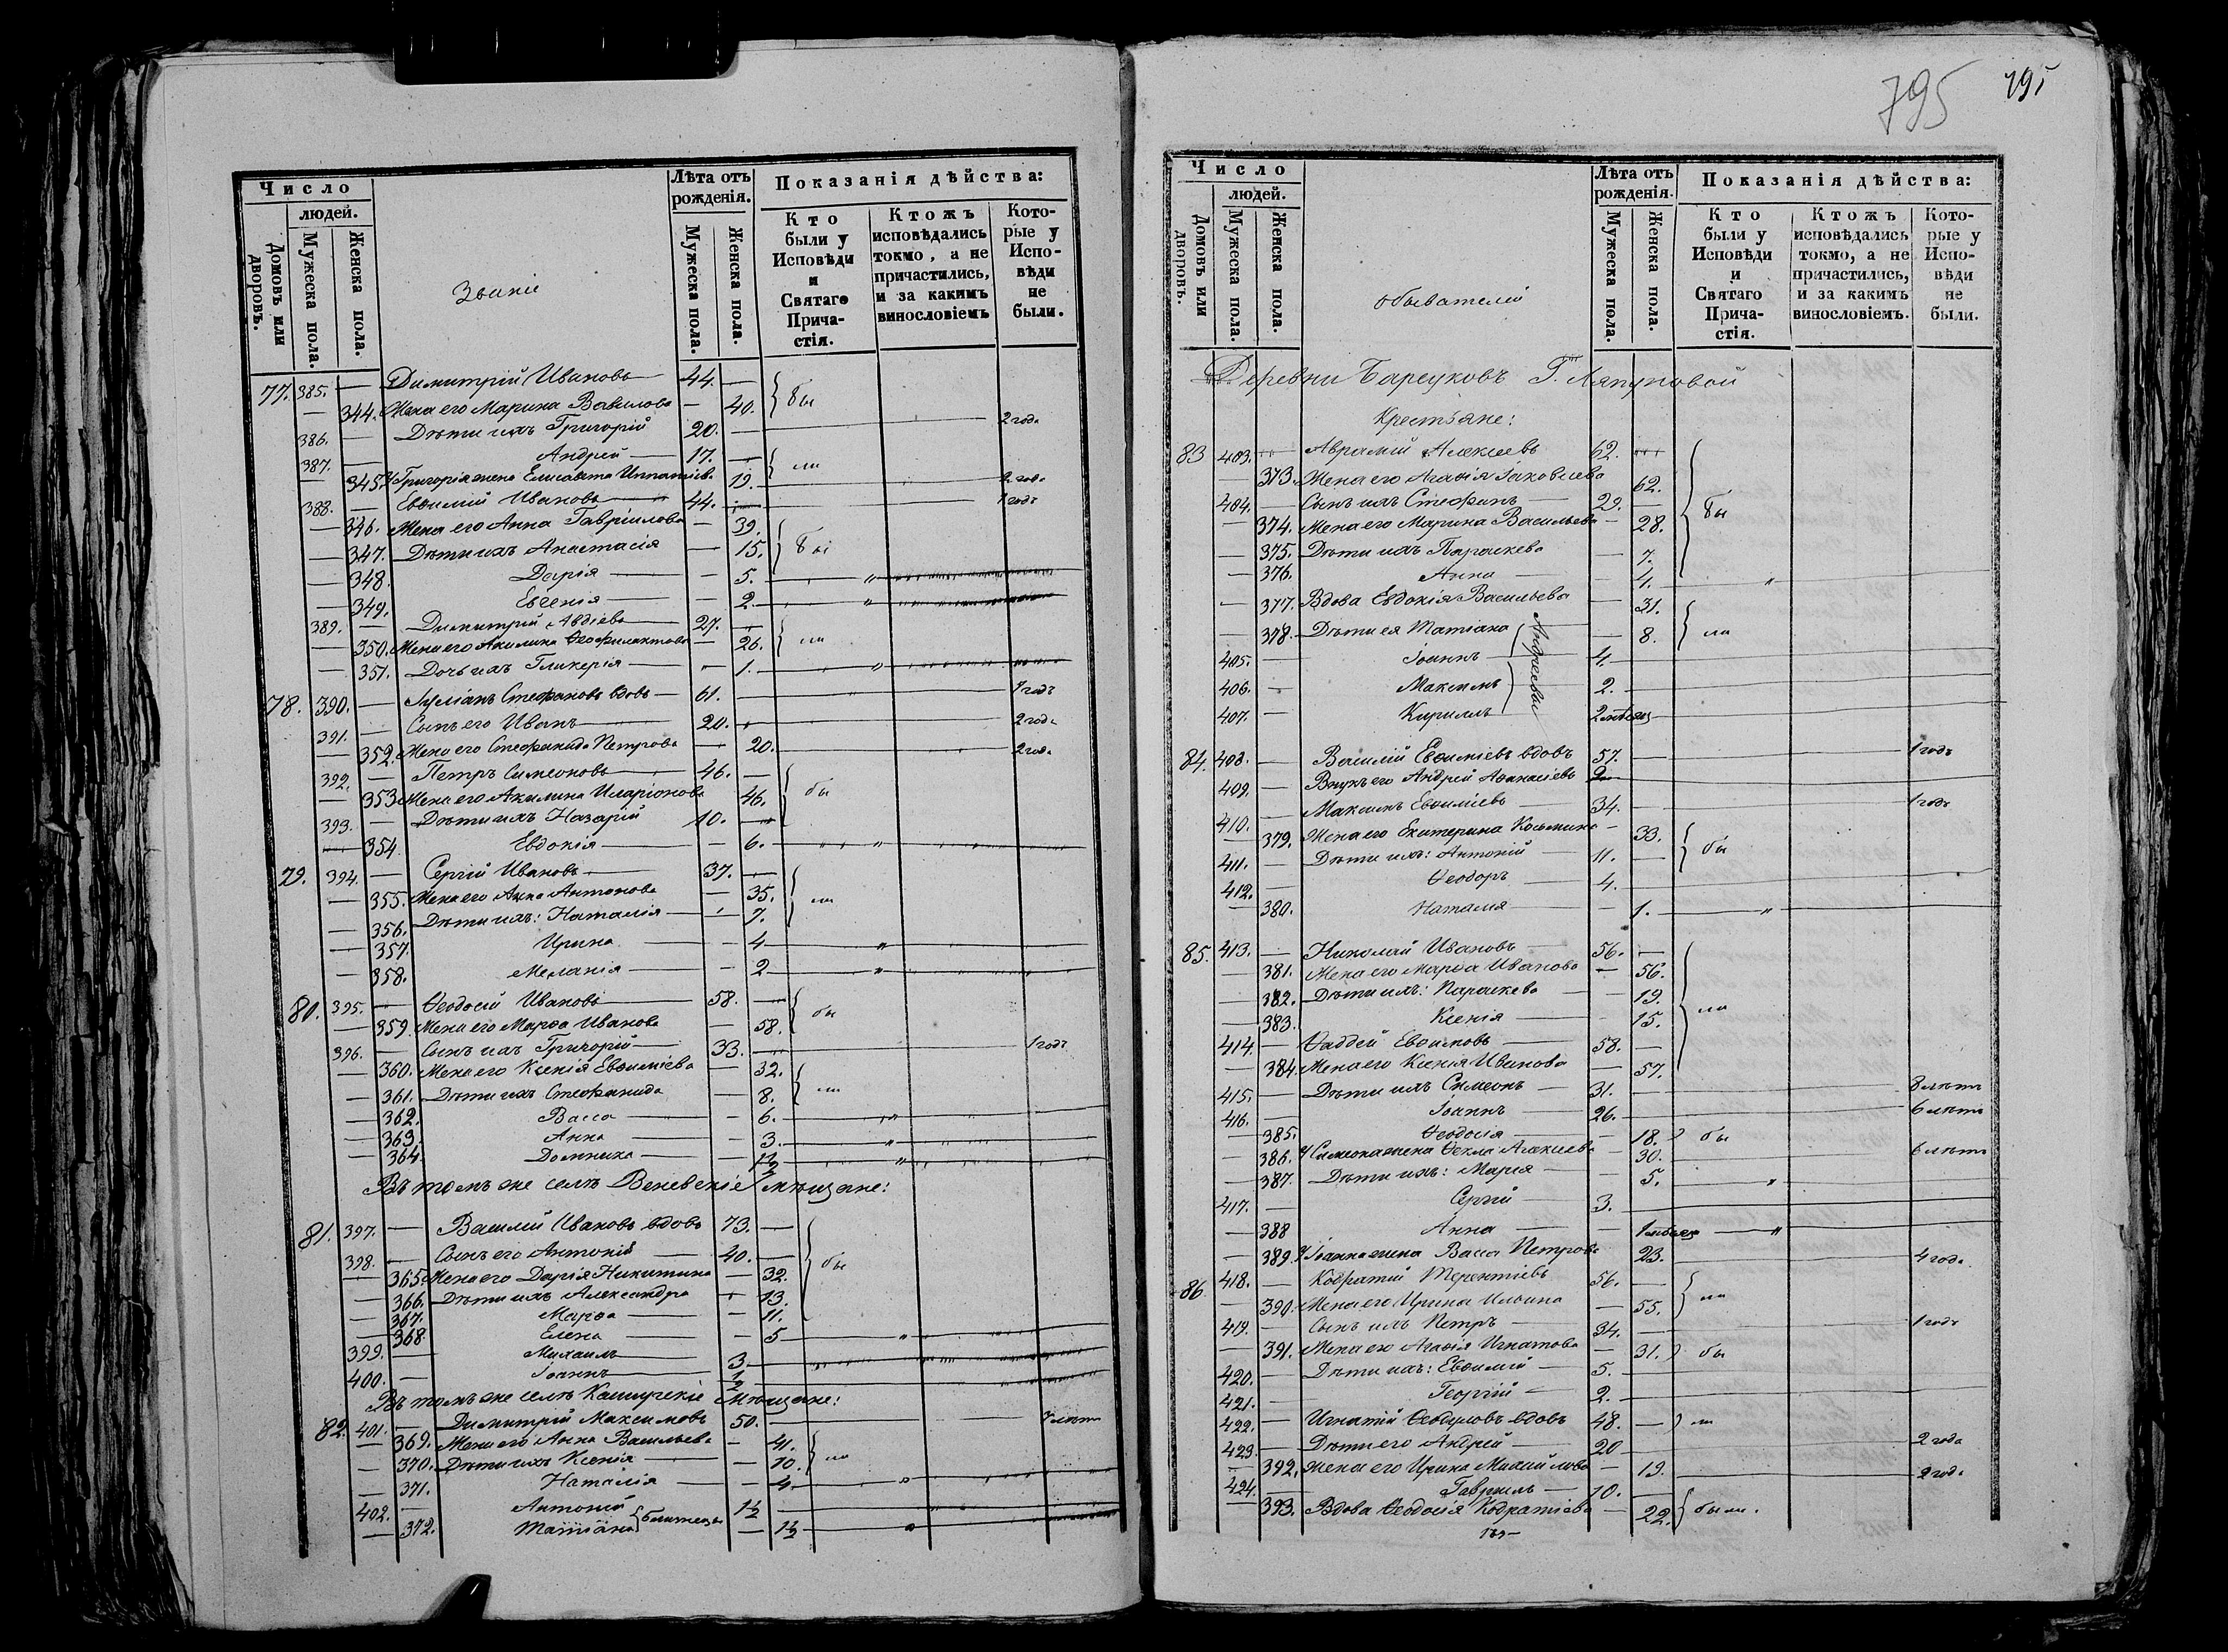 795 795
Число
людей.
Домовъ или дворовъ.
Мужеска пола.
Женска пола.
Званіе
Лѣта отъ рожденія.
Мужеска пола.
Женска пола.
Показанія дѣйства:
Кто были у Исповѣди и Святаго Причастія.
Ктожъ исповѣдались токмо, а не причастились, и за какимъ винословіемъ
Которые у Исповѣди не были.
77. 385. — Димитрій Ивановъ — 44. — бы
— 344. Жена его Марина Вавилова — 40.
386. — Дѣти ихъ Григорій 20. — 2 года
387. — Андрей — 17. — ли
— 345. Григорія жена Елисавета Игнатіева 19. 2 года
388. — Евѳимій Ивановъ 44. — 1 годъ
— 346. Жена его Анна Гавріилова — 39.
— 347. Дѣти ихъ Анастасія — 15. бы
— 348. Дарія — 5. — „
— 349. Евгенія — 2. — „
389. — Димитрій Авдіевъ — 27. —
— 350. Жена его Акилина Ѳеофилактова — 26. ли
— 351. Дочь ихъ Гликерія — 1. — „
78. 390. — Іуліанъ Стефановъ вдовъ — 61. — „ 1 годъ
391. — Сынъ его Иванъ — 20. — 2 года
— 352. Жена его Стефанида Петрова — 20. — 2 года
392. — Петръ Симеоновъ — 46. —
— 353. Жена его Акилина Иларіонова 46. бы
393. — Дѣти ихъ Назарій 10. —
— 354. Евдокія — 6. — „
79. 394. — Сергій Ивановъ — 37. —
— 355. Жена его Анна Антонова — 35. ли
— 356. Дѣти ихъ: Наталія — 7.
— 357. Ирина — 4 — „
— 358. Меланія — 2 — „
80. 395. — Ѳеодосій Ивановъ — 58. —
— 359. Жена его Марѳа Иванова — 58. бы
396. — Сынъ ихъ Григорій — 33. — 1 годъ
— 360. Жена его Ксенія Евѳиміева — 32.
— 361. Дѣти ихъ Стефанида — 8. ли
— 362. Васса — 6. — „
— 363. Анна — 3. — „
— 364. Домника — 1½ — „
Въ томъ же селѣ Веневскіе мѣщане:
81. 397. — Василій Ивановъ вдовъ 73. —
398. — Сынъ его Антоній — 40. — бы
— 365. Жена его Дарія Никитина — 32.
— 366. Дѣти ихъ Александра — 13.
— 367. Марѳа — 11.
— 368. Елена — 5 — „
399. — Михаилъ — 3 —
400. — Іоаннъ — ½ —
Въ томъ же селѣ Каширскіе мѣщане:
82. 401. — Димитрій Максимовъ 50. — лѣтъ
— 369. Жена его Анна Васильева — 41.
— 370. Дѣти ихъ Ксенія — 10. ли
— 371. Наталія — 4 — „
402. — Антоній 1½ —
— 372. Татіана близнецы — 1½ — „
Число
людей.
Домовъ или дворовъ.
Мужеска пола.
Женска пола.
обывателей
Лѣта отъ рожденія.
Мужеска пола.
Женска пола.
Показанія дѣйства:
Кто были у Исповѣди и Святаго Причастія.
Ктожъ исповѣдались токмо, а не причастились, и за какимъ винословіемъ.
Которые у Исповѣди не были.
Деревни Барсуковъ Г. Ляпуновой
Крестьяне:
83 403. — Аврамій Алексіевъ 62. —
— 373. Жена его Агаѳія Іаковлева 62.
404. — Сынъ ихъ Стефанъ — 29. — бы
— 374. Жена его Марина Васильева — 28.
— 375. Дѣти ихъ Параскева — 7.
— 376. Анна — 4. — „
— 377. Вдова Евдокія Васильева — 31.
— 378. Дѣти ея Татіана — 8. ли
405. — Іоаннъ — 4. —
406. — Максимъ 2. —
407. — Кириллъ 2 мѣсяц —
Андреевы
84. 408. — Василій Евѳиміевъ вдовъ 57. — 1 годъ
409. — Внукъ его Андрей Аѳанасіевъ 2 —
410. — Максимъ Евѳиміевъ — 34. — 1 годъ
— 379. Жена его Екатерина Косьмина — 33. бы
411. — Дѣти ихъ: Антоній — 11. —
412. — Ѳеодоръ — 4. —
— 380. Наталія — 1. — „
85. 413. — Николай Ивановъ — 56. —
— 381. Жена его Марѳа Иванова — 56.
— 382. Дѣти ихъ: Параскева — 19. ли
— 383. Ксенія — 15.
414. — Ѳаддей Евѳимовъ — 58. —
— 384. Жена его Ксенія Иванова — 57.
415. — Дѣти ихъ Симеонъ — 31. — 8 лѣтъ
416. — Іоаннъ — 26. — 6 лѣтъ
— 385. Ѳеодосія — 18. бы
— 386. Симеона жена Ѳекла Алексіева — 30. 6 лѣтъ
— 387. Дѣти ихъ: Марія — 5. — „
417. — Сергій — 3. —
— 388 Анна — 1 — „
— 389. Іоанна жена Васса Петрова 23. — 4 года
86. 418. — Кодратій Терентіевъ 56. —
— 390. Жена его Ирина Ильина — 55. ли
419. — Сынъ ихъ Петръ — 34. — 1 годъ
— 391. Жена его Агаѳія Игнатова — 31. бы
420. — Дѣти ихъ: Евѳимій — 5. —
421. — Георгій — 2. —
422. — Игнатій Ѳеодуловъ вдовъ 48. — ли
423. — Дѣти его Андрей — 20 — 2 года
— 392. Жена его Ирина Михайлова — 19. — 2 года
424. — Гавріилъ — 10. —
— 393. Вдова Ѳеодосія Кодратіева — 22. были.